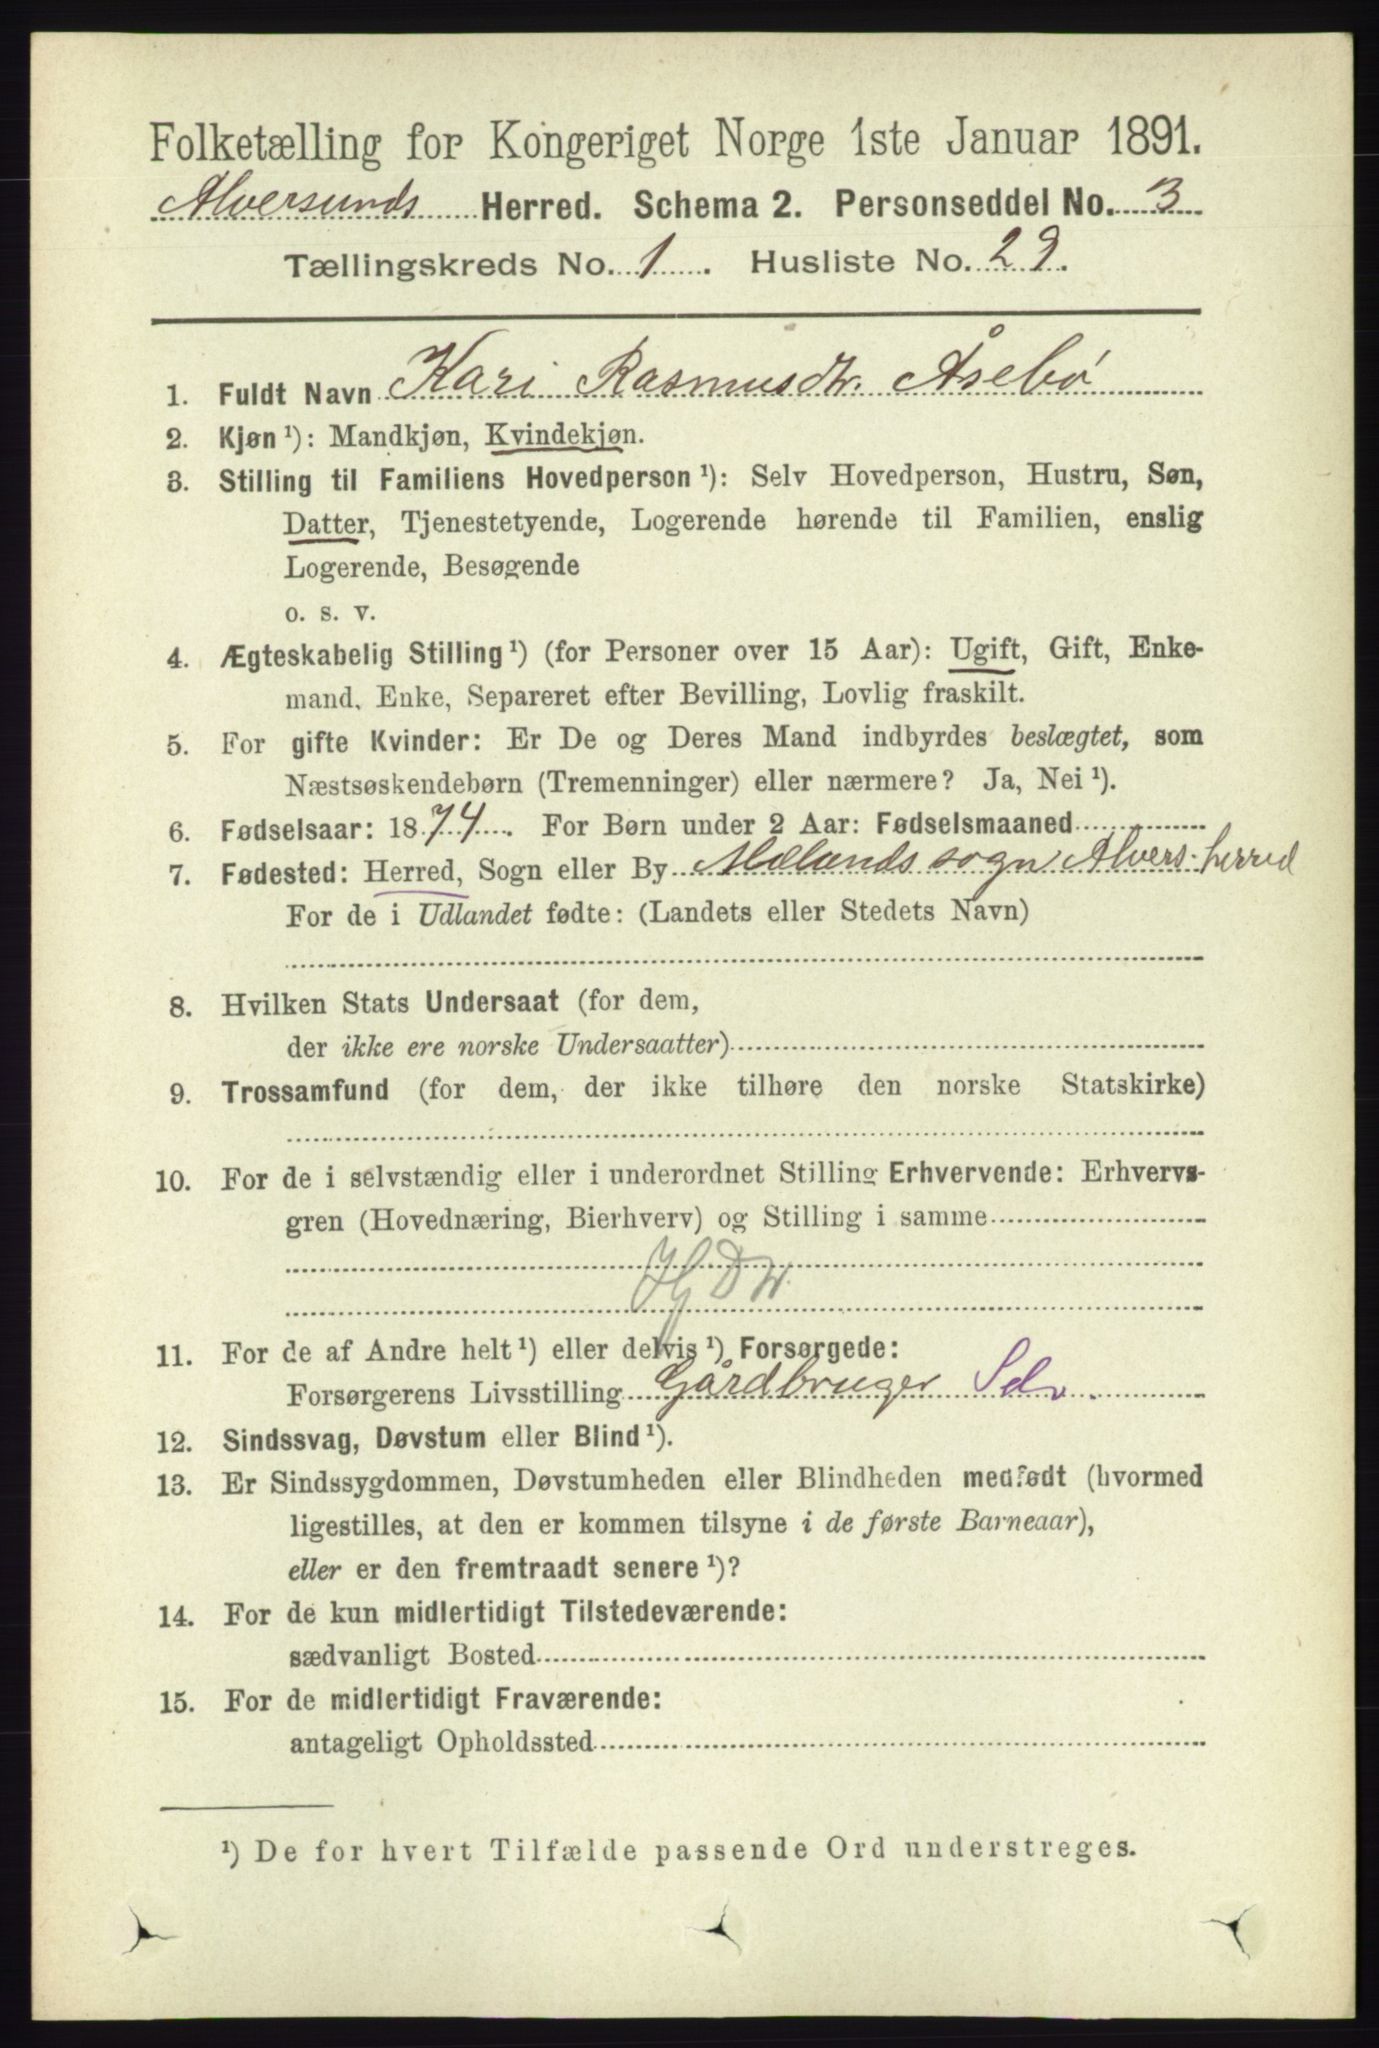 Folketælling for Kongeriget Norge 1ste Januar 1891.
Alversunds Herred. Schema 2. Personseddel No. 3
Tællingskreds No. 1. Husliste No. 29.
1. Fuldt Navn Kari Rasmusdtr. Åsebø
2. Kjøn ¹): Mandkjøn, Kvindekjøn.
3. Stilling til Familiens Hovedperson ¹): Selv Hovedperson, Hustru, Søn,
Datter, Tjenestetyende, Logerende hørende til Familien, enslig
Logerende, Besøgende
o. s. v.
4. Ægteskabelig Stilling ¹) (for Personer over 15 Aar): Ugift, Gift, Enke-
mand, Enke, Separeret efter Bevilling, Lovlig fraskilt.
5. For gifte Kvinder: Er De og Deres Mand indbyrdes beslægtet, som
Næstsøskendebørn (Tremenninger) eller nærmere? Ja, Nei ¹).
6. Fødselsaar: 1874. For Børn under 2 Aar: Fødselsmaaned
7. Fødested: Herred, Sogn eller By Mælands sogn Alvers. herred
For de i Udlandet fødte: (Landets eller Stedets Navn)
8. Hvilken Stats Undersaat (for dem,
der ikke ere norske Undersaatter)
9. Trossamfund (for dem, der ikke tilhøre den norske Statskirke)
10. For de i selvstændig eller i underordnet Stilling Erhvervende: Erhvervs-
gren (Hovednæring, Bierhverv) og Stilling i samme
11. For de af Andre helt ¹) eller delvis ¹) Forsørgede:
Forsørgerens Livsstilling Gårdbruger Selv.
12. Sindssvag, Døvstum eller Blind ¹).
13. Er Sindssygdommen, Døvstumheden eller Blindheden medfødt (hvormed
ligestilles, at den er kommen tilsyne i de første Barneaar),
eller er den fremtraadt senere ¹)?
14. For de kun midlertidigt Tilstedeværende:
sædvanligt Bosted
15. For de midlertidigt Fraværende:
antageligt Opholdssted
¹) De for hvert Tilfælde passende Ord understreges.